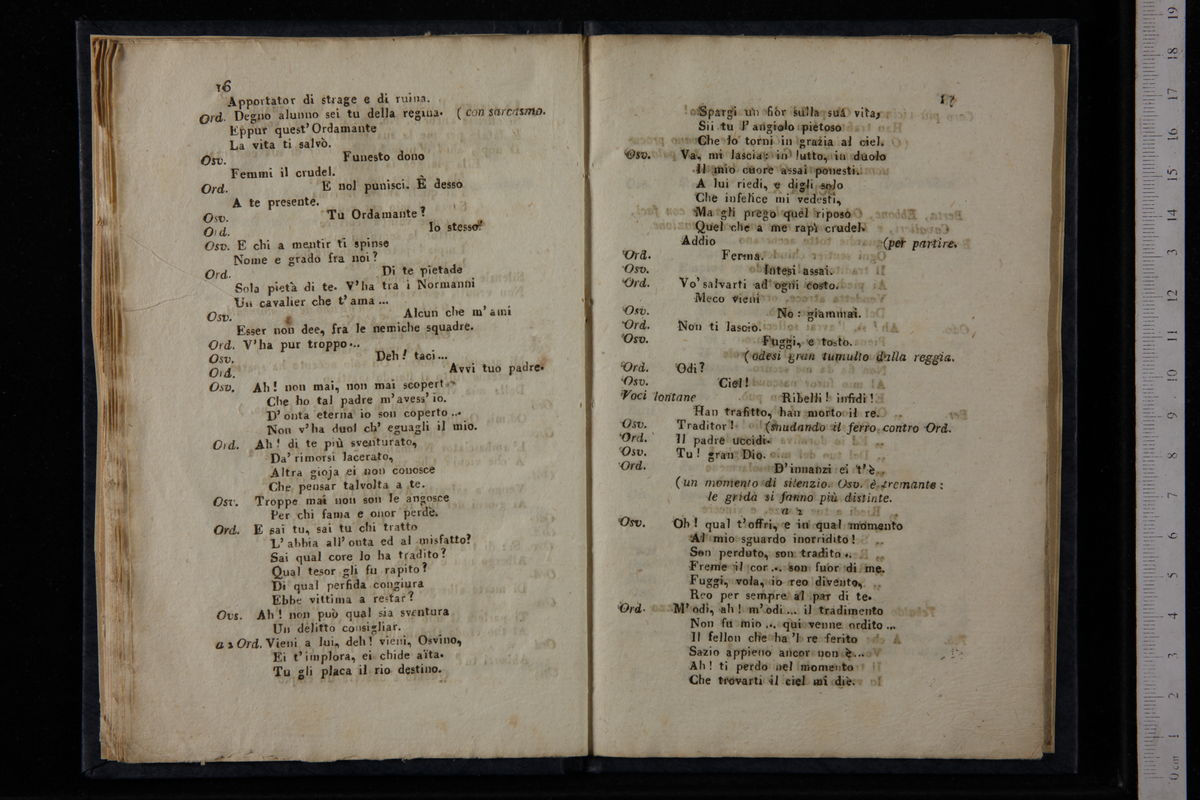 16
Apportator di strage e di ruina.
Ord. Degno alunno sei tu della regina. ( con sarcasmo.
Eppur quest' Ordamante
La vita ti salvò.
Osv. Funesto dono
Femmi il crudel.
Ord. E nol punisci. È desso
A te presente.
Osv. Tu Ordamante?
Ord. Io stesso.
Osv. E chi a mentir ti spinse
Nome e grado fra noi?
Ord. Di te pietade
Sola pietà di te. V'ha tra i Normanni
Un cavalier che t'ama ...
Osv. Alcun che m'ami
Esser non dee, fra le nemiche squadre.
Ord. V'ha pur troppo...
Osv. Deh! taci...
Ord. Avvi tuo padre.
Osv. Ah! non mai, non mai scoperto
Che ho tal padre m'avess' io.
D'onta eterna io son coperto ...
Non v'ha duol ch' eguagli il mio.
Ord. Ah! di te più sventurato,
Da' rimorsi lacerato,
Altra gioja ei non conosce
Che pensar talvolta a te.
Osv. Troppe mai non son le angosce
Per chi fama e onor perdè.
Ord. E sai tu, sai tu chi tratto
L'abbia all'onta ed al misfatto?
Sai qual core lo ha tradito?
Qual tesor gli fu rapito?
Di qual perfida congiura
Ebbe vittima a restar?
Ovs. Ah! non può qual sia sventura
Un delitto consigliar.
a 2 Ord. Vieni a lui, deh! vieni, Osvino,
Ei t'implora, ei chide aïta.
Tu gli placa il rio destino.
17
Spargi un fior sulla sua vita,
Sii tu l'angiolo pietoso
Che lo torni in grazia al ciel.
Osv. Va, mi lascia: in lutto, in duolo
Il mio cuore assai ponesti.
A lui riedi, e digli solo
Che infelice mi vedesti,
Ma gli prego quel riposo
Quel che a me rapì crudel.
Addio (per partire.
Ord. Ferma.
Osv. Intesi assai.
Ord. Vo' salvarti ad ogni costo.
Meco vieni
Osv. No: giammai.
Ord. Non ti lascio.
Osv. Fuggi, e tosto.
( odesi gran tumulto dalla reggia.
Ord. Odi?
Osv. Ciel!
Voci lontane Ribelli! infidi!
Han trafitto, han morto il re.
Osv. Traditor! (snudando il ferro contro Ord.
Ord. Il padre uccidi.
Osv. Tu! gran Dio.
Ord. D'innanzi ei t'è
( un momento di silenzio. Osv. è tremante:
le grida si fanno più distinte.
a 2
Osv. Oh! qual t'offri, e in qual momento
Al mio sguardo inorridito!
Son perduto, son tradito ..
Freme il cor ... son fuor di me.
Fuggi, vola, io reo divento,
Reo per sempre al par di te.
Ord. M'odi, ah! m'odi ... il tradimento
Non fu mio ... qui venne ordito ...
Il fellon che ha 'l re ferito
Sazio appieno ancor non è...
Ah! ti perdo nel momento
Che trovarti il ciel mi diè.